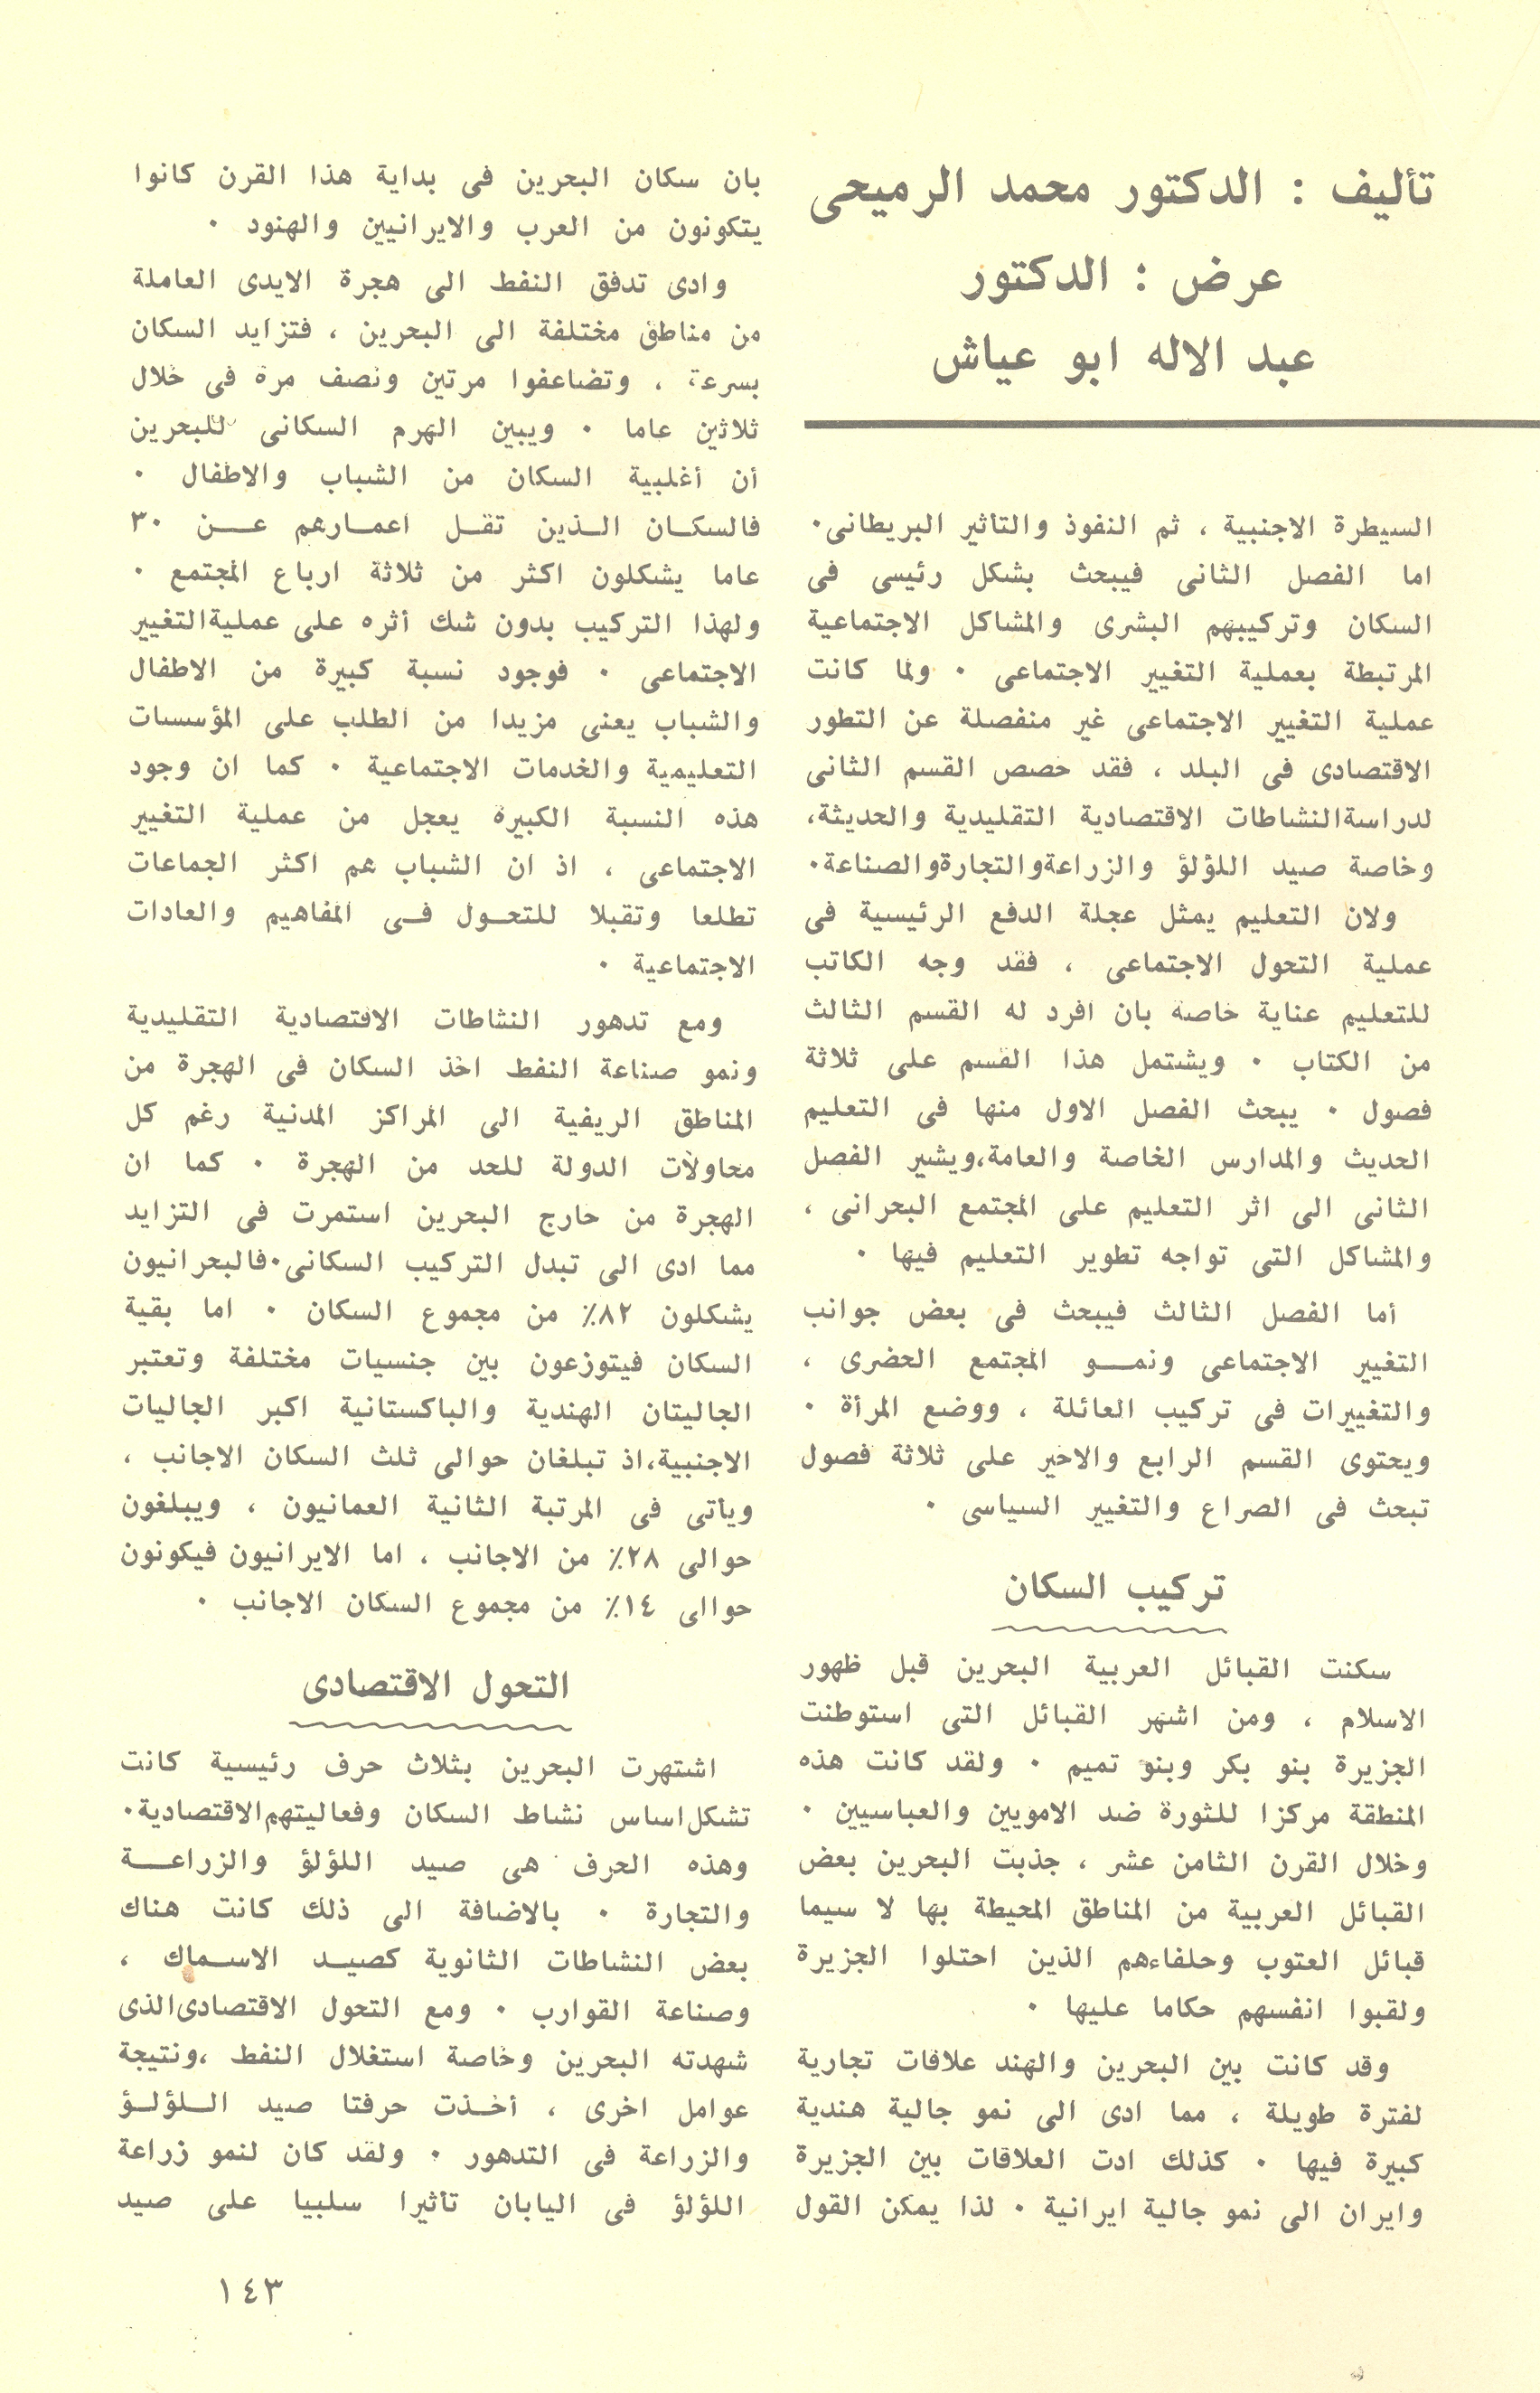 تأليف : الدكتور محمد الرميحى
عرض : الدكتور
عبد الاله ابو عياش
السيطرة الاجنبية ، ثم النفوذ والتأثير البريطانى٠
اما الفصل الثانى فيبحث بشكل رئيسى فى
السكان وتركيبهم البشرى والمشاكل الاجتماعية
المرتبطة بعملية التغيير الاجتماعى ٠ ولما كانت
عملية التغيير الاجتماعى غير منفصلة عن التطور
الاقتصادى فى البلد ، فقد خصص القسم الثانى
لدراسة النشاطات الاقتصادية التقليدية والحديثة،
وخاصة صيد اللؤلؤ والزراعة والتجارة والصناعة٠
ولان التعليم يمثل عجلة الدفع الرئيسية فى
عملية التحول الاجتماعى ، فقد وجه الكاتب
للتعليم عناية خاصة بان افرد له القسم الثالث
من الكتاب ٠ ويشتمل هذا القسم على ثلاثة
فصول ٠ يبحث الفصل الاول منها فى التعليم
الحديث والمدارس الخاصة والعامة،ويشير الفصل
الثانى الى اثر التعليم على المجتمع البحرانى ،
والمشاكل التى تواجه تطوير التعليم فيها ٠
أما الفصل الثالث فيبحث فى بعض جوانب
التغيير الاجتماعى ونمــو المجتمع الحضرى ،
والتغييرات فى تركيب العائلة ، ووضع المرأة ٠
ويحتوى القسم الرابع والاخير على ثلاثة فصول
تبحث فى الصراع والتغيير السياسى ٠
تركيب السكان
سكنت القبائل العربية البحرين قبل ظهور
الاسلام ، ومن اشهر القبائل التى استوطنت
الجزيرة بنو بكر وبنو تميم ٠ ولقد كانت هذه
المنطقة مركزا للثورة ضد الامويين والعباسيين ٠
وخلال القرن الثامن عشر ، جذبت البحرين بعض
القبائل العربية من المناطق المحيطة بها لا سيما
قبائل العتوب وحلفاءهم الذين احتلوا الجزيرة
ولقبوا انفسهم حكاما عليها ٠
وقد كانت بين البحرين والهند علاقات تجارية
لفترة طويلة ، مما ادى الى نمو جالية هندية
كبيرة فيها ٠ كذلك ادت العلاقات بين الجزيرة
وايران الى نمو جالية ايرانية ٠ لذا يمكن القول
بان سكان البحرين فى بداية هذا القرن كانوا
يتكونون من العرب والايرانيين والهنود ٠
وادى تدفق النفط الى هجرة الايدى العاملة
من مناطق مختلفة الى البحرين ، فتزايد السكان
بسرعة ، وتضاعفوا مرتين ونصف مرة فى خلال
ثلاثين عاما ٠ ويبين الهرم السكانى للبحرين
أن أغلبية السكان من الشباب والاطفال ٠
فالسكــان الــذين تقــل اعمــارهم عــن ٣٠
عاما يشكلون اكثر من ثلاثة ارباع المجتمع ٠
ولهذا التركيب بدون شك أثره على عملية التغيير
الاجتماعى ٠ فوجود نسبة كبيرة من الاطفال
والشباب يعنى مزيدا من الطلب على المؤسسات
التعليمية والخدمات الاجتماعية ٠ كما ان وجود
هذه النسبة الكبيرة يعجل من عملية التغيير
الاجتماعى ، اذ ان الشباب هم اكثر الجماعات
تطلعا وتقبلا للتحــول فــى المفاهيم والعادات
الاجتماعية ٠
ومع تدهور النشاطات الاقتصادية التقليدية
ونمو صناعة النفط اخذ السكان فى الهجرة من
المناطق الريفية الى المراكز المدنية رغم كل
محاولات الدولة للحد من الهجرة ٠ كما ان
الهجرة من خارج البحرين استمرت فى التزايد
مما ادى الى تبدل التركيب السكانى٠فالبحرانيون
يشكلون ٨٢٪ من مجموع السكان ٠ اما بقية
السكان فيتوزعون بين جنسيات مختلفة وتعتبر
الجاليتان الهندية والباكستانية اكبر الجاليات
الاجنبية،اذ تبلغان حوالى ثلث السكان الاجانب ،
ويأتى فى المرتبة الثانية العمانيون ، ويبلغون
حوالى ٢٨٪ من الاجانب ، اما الايرانيون فيكونون
حوالى ١٤٪ من مجموع السكان الاجانب ٠
التحول الاقتصادى
اشتهرت البحرين بثلاث حرف رئيسية كانت
تشكل اساس نشاط السكان وفعاليتهم الاقتصادية٠
وهذه الحرف هى صيد اللؤلؤ والزراعــة
والتجارة ٠ بالاضافة الى ذلك كانت هناك
بعض النشاطات الثانوية كصيــد الاســماك ،
وصناعة القوارب ٠ ومع التحول الاقتصادى الذى
شهدته البحرين وخاصة استغلال النفط ،ونتيجة
عوامل اخرى ، أخــذت حرفتا صيد اللــؤلــؤ
والزراعة فى التدهور ٠ ولقد كان لنمو زراعة
اللؤلؤ فى اليابان تأثيرا سلبيا على صيد
١٤٣